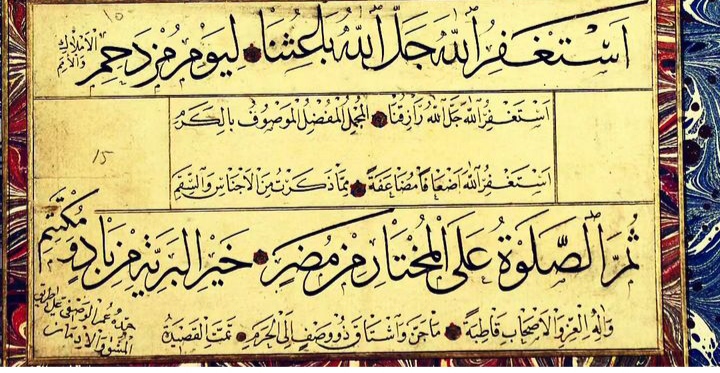 اَسْتَغْفِرُ اللّٰهَ جَلَّ اللّٰهُ بَاعِثُنَا لِيَوْمِ مُزْدَحِمِ الْاَمْلَاكِ وَالْاُمَمِ
اَسْتَغْفِرُ اللّٰهَ جَلَّ اللّٰهُ رَازِقُنَا الْمُجْمِلُ الْمُفْضِلُ الْمَوْصُوفُ بِالْكَرَمِ
١٥
اَسْتَغْفِرُ اللّٰهَ اَضْعَافًا مُضَاعَفَةً مِمَّا ذَكَرْتُ مِنَ الْاَجْنَاسِ
ثُمَّ الصَّلٰوةُ عَلَى الْمُخْتَارِ مِنْ مُضَرٍ خَيْرِ الْبَرِيَّةِ مِنْ بَادٍ وَمُكْتَتِمِ
وَاٰلِهِ الْغُرِّ وَالْاَصْحَابِ قَاطِبَةً مَا حَنَّ وَاشْتَاقَ ذُو وَصْفٍ اِلَى الْحَرَمِ تَمَّتِ الْقَصِيدَة
عمر الوصفى على طريق
المشق والادمان